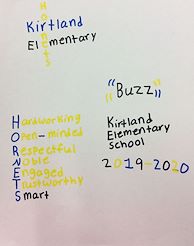 H
o
Kirtland
n
Elementary
t
s
"Buzz"
Hardworking
Open-minded
Respectful
Noble
Engaged
Trustworthy
Smart
Kirtland
Elementary
School
2019-2020